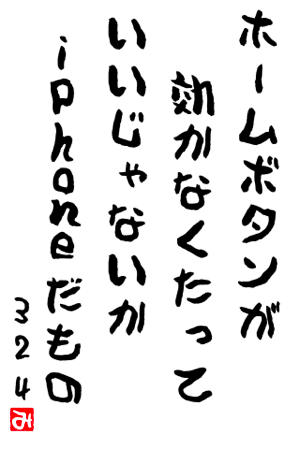 ホームボタンが
効かなくたって
いいじゃないか
iphoneだもの
324
み